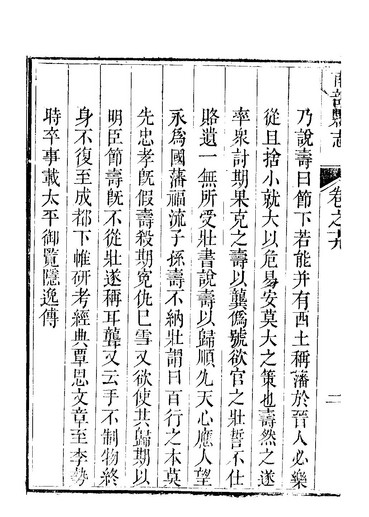 南部縣志
卷之
乃說壽曰節下若能并有西土稱藩於晉人必樂
從且捨小就大以危易安莫大之策也壽然之遂
率眾計期果克之壽以龔僞號欲官之壯誓不仕
賂遺一無所受壯書說壽以歸順允天心應人望
永爲國藩福流子孫壽不納壯謂曰百行之本莫
先忠孝旣假壽殺期寃仇已雪又欲使其歸期以
明臣節壽旣不從壯遂稱耳聾又云手不制物終
身不復至成都下帷研考經典覃思文章至李勢
時卒事載太平御覽隱逸傳